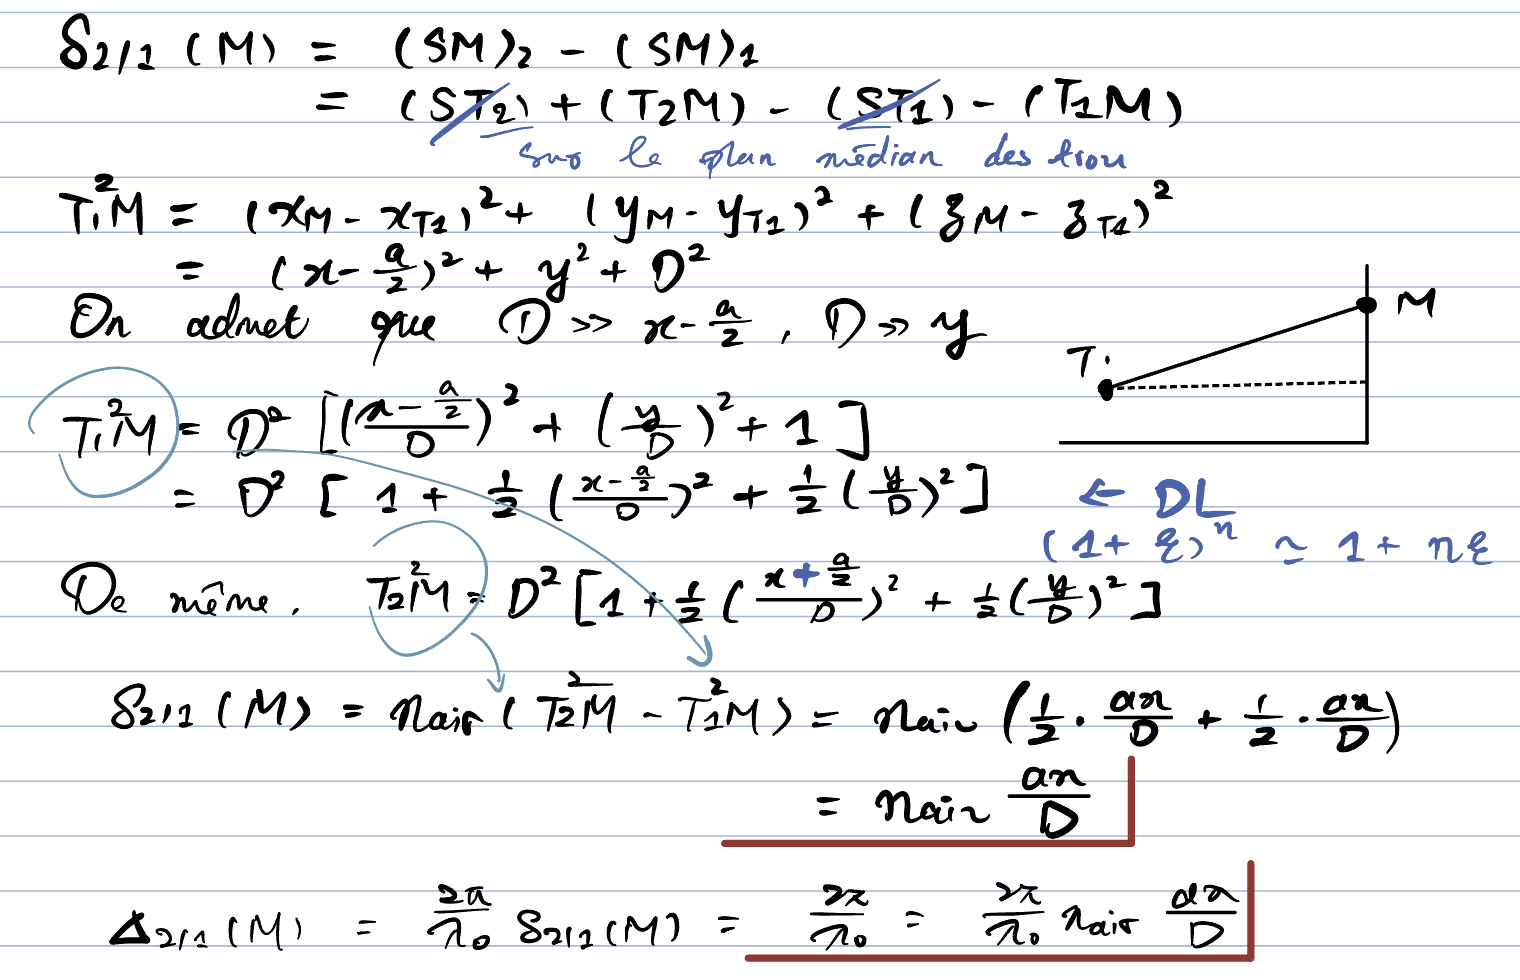 δ₂/₁ (M) = (SM)₂ - (SM)₁
= (ST₂) + (T₂M) - (ST₁) - (T₁M)
sur le plan médian des trou
T₁M² = (x_M - x_T₁)² + (y_M - y_T₁)² + (z_M - z_T₁)²
= (x - a/2)² + y² + D²
On admet que D >> x - a/2 , D >> y
M
T₁
T₁M² = D² [((x - a/2)/D)² + (y/D)² + 1]
= D² [ 1 + 1/2 ((x - a/2)/D)² + 1/2 (y/D)² ] ← DL
(1 + ξ)ⁿ ≃ 1 + nξ
De même, T₂M² = D² [1 + 1/2 ((x + a/2)/D)² + 1/2 (y/D)² ]
δ₂/₁ (M) = nair ( T₂M² - T₁M² ) = nair (1/2 · ax/D + 1/2 · ax/D)
= nair ax/D
Δ₂/₁ (M) = 2π/λ₀ δ₂/₁ (M) = 2π/λ₀ = 2π/λ₀ nair ax/D